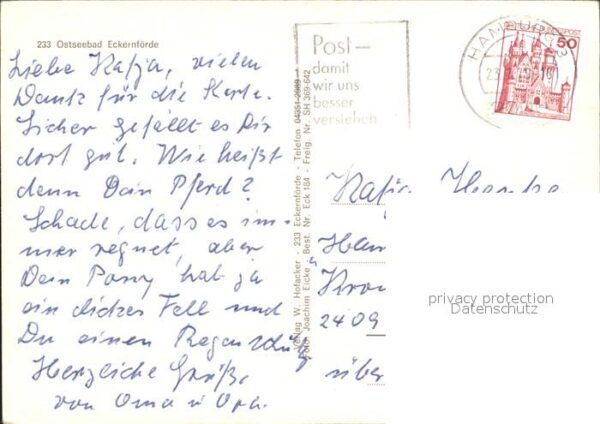 233 Ostseebad Eckernförde
Liebe Katja, vielen
Dank für die Karte.
Sicher gefällt es Dir
dort gut. Wie heißt
denn Dein Pferd?
Schade, dass es im-
mer regnet, aber
Dein Pony hat ja
ein dickes Fell und
Du einen Regenschutz
Herzliche Grüße
von Oma u Opa.
Verlag W. Hofacker - 233 Eckernförde - Telefon 04351-2989
Foto Joachim Eicke Best. Nr. Eck 184 - Freig. Nr. SH 369-642
Post -
damit
wir uns
besser
verstehen
HAMBURG
23
50
Katja
2409
über
privacy protection
Datenschutz